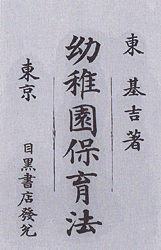 東 基吉著
幼稚園保育法
東京 目黒書店發兌